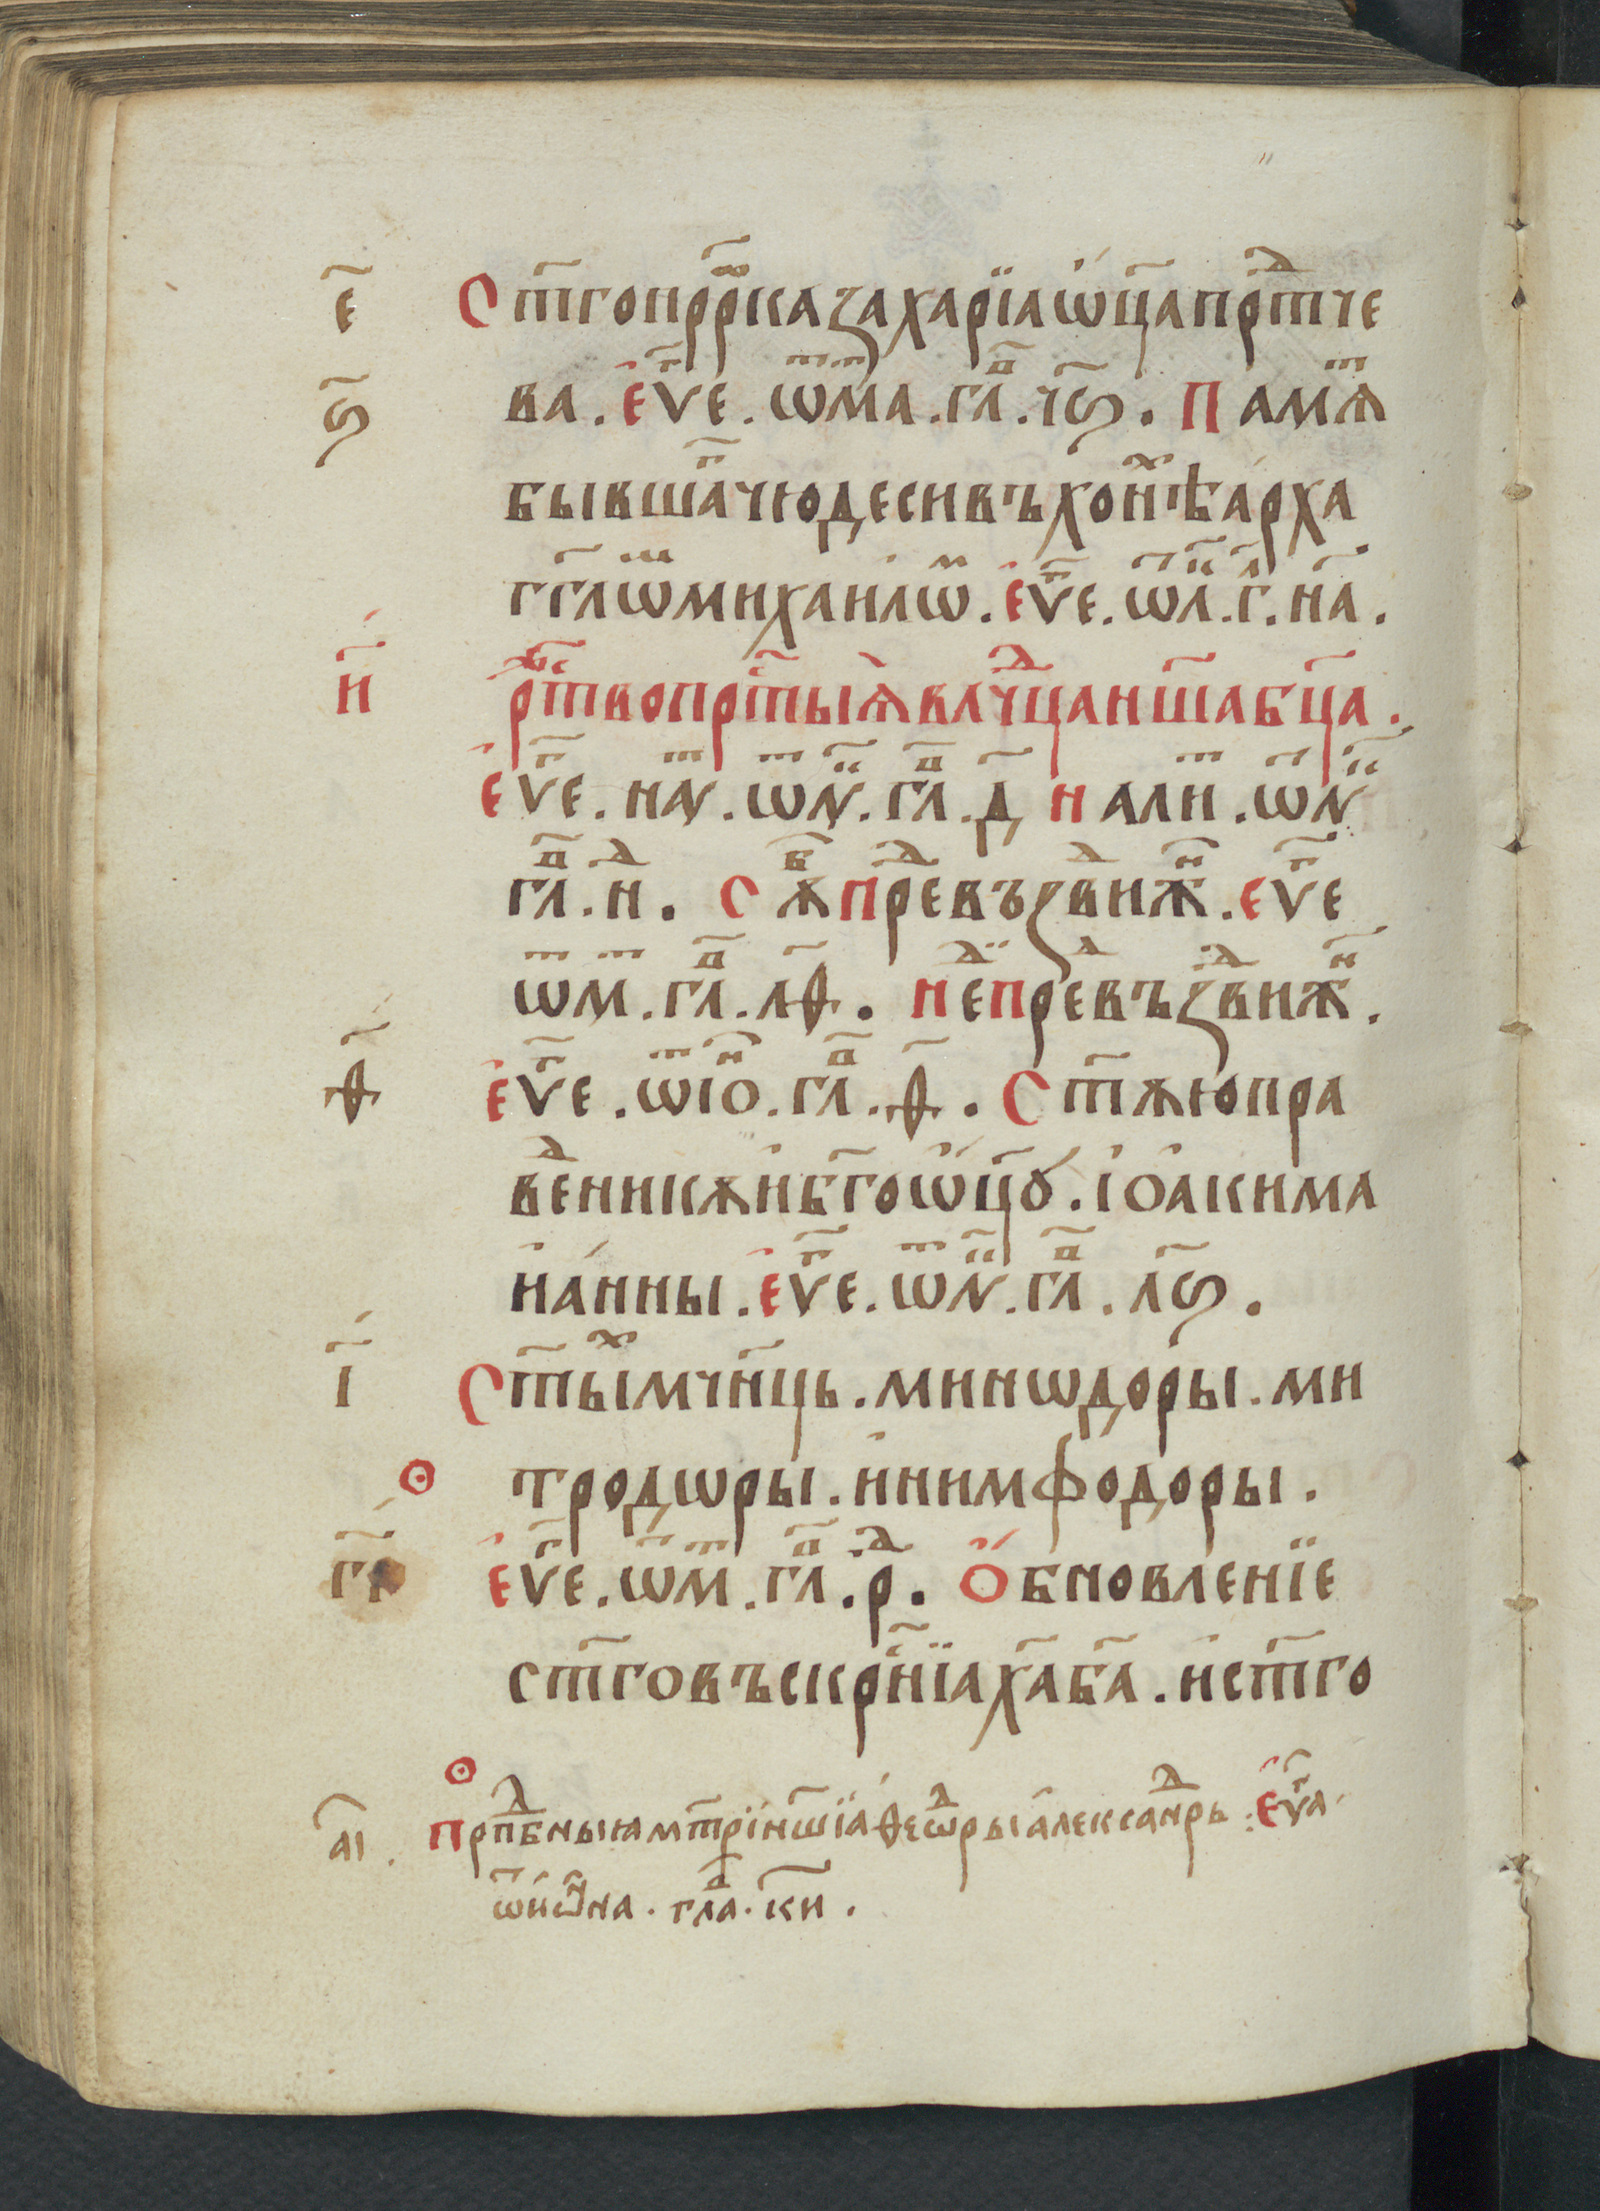 е҃ Ст҃гопрⷪ҇рказахарїаѡ҆ц҃апрⷣт҃че
ѕ҃ ва . Еѵⷢ҇е . ѿмⷮа . глⷡ҇ . ч҃ѕ . Памѧⷮ
бывшⷢ҇ачюдесивъхонⷯѣа́рха
гг҃лѡⷨмихаилѡⷨ . Еѵⷢ҇е . ѿлⷦ҇ . г҃ . на҃ .
и҃ рⷤт҇вопрⷭ҇тыѧ҆влⷣчцанш҃абц҃а .
Еѵⷢ҇е . наⷮѵ . ѿлⷦ҇ . глⷡ҇ . д҃ налиⷮ . ѿлⷦ҇
глⷡ҇ . нⷣ҇ . Сѫⷠ҇ Прⷣевъзвⷣижⷩ҇ . еѵⷢ҇е
ѿмⷮ . глⷡ҇ . лѳ҃ . Нⷣепрⷣевъзвⷣижⷩ҇ .
ѳ҃ Еѵⷢ҇е . ѿіоⷩ҇ . глⷡ҇ . ѳ҃ . Ст҃ѫюпра
веⷣникѫи҆бг҃оѡ҆ц҃ꙋ . і҆оа҆кима
иа҆́нны . Еѵⷢ҇е . ѿлⷦ҇ . глⷡ҇ . л҃ѕ .
і҃ Ст҃ыⷯмчн҃ць . минѡдоры . ми
тродѡры . и҆нимфодоры .
г҃і Еѵⷢ҇е . ѿмⷮ . глⷡ҇ . рⷣ . Ѻ҆бновленїе
ст҃говъскрⷭ҇нїах҃аб҃а . и҆ст҃го
а҃і . Прпⷣбныѧмт҃рїнш҃їаѳеѡⷣрыа҆лексанⷣрь . Еѵⷢ҇а
ѿи҆ѡ҆́на . глⷡ҇а . к҃и .